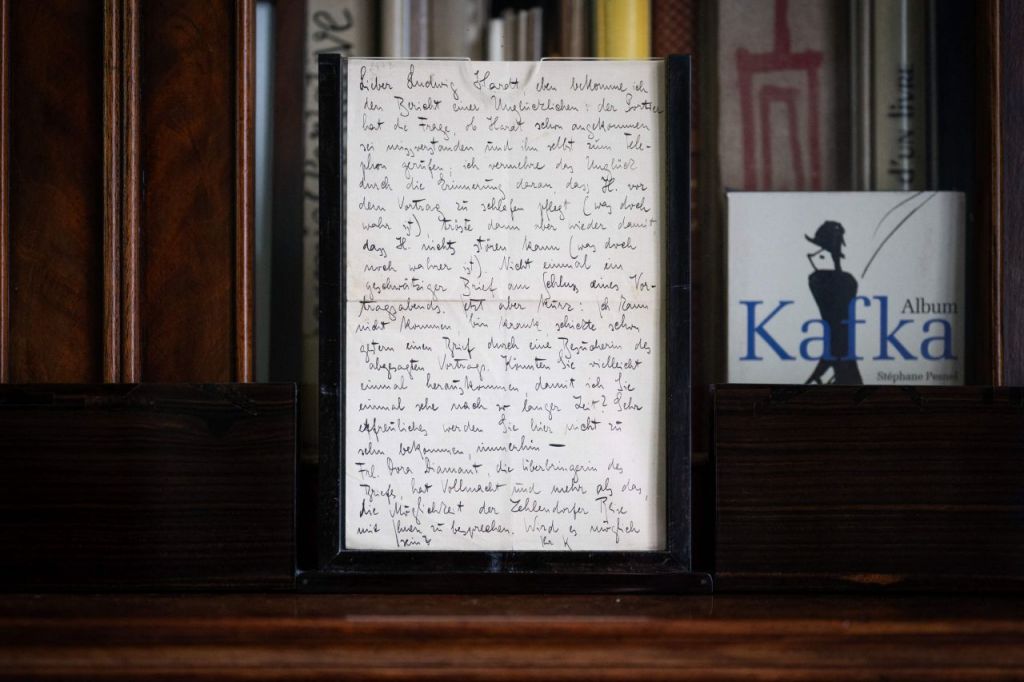 Lieber Ludwig Hardt, eben bekomme ich
den Bericht einer Unglücklichen: der Portier
hat die Frage, ob Hardt schon angekommen
sei missverstanden und ihn selbst zum Tele-
phon gerufen; ich vermehre das Unglück
durch die Erinnerung daran dass H. vor
dem Vortrag zu schlafen pflegt (was doch
wahr ist), tröste dann aber wieder damit
dass H. nichts stören kann (was doch
noch wahrer ist). Nicht einmal ein
geschwätziger Brief am Schluss eines Vor-
tragsabends. Jetzt aber kurz: Ich kann
nicht kommen, bin krank, schickte schon
gestern einen Brief durch eine Besucherin des
abgesagten Vortrags. Könnten Sie vielleicht
einmal herauskommen, damit ich Sie
einmal sehe nach so langer Zeit? Sehr
erfreuliches werden Sie hier nicht zu
sehn bekommen, immerhin —
Frl. Dora Diamant, die Überbringerin des
Briefes, hat Vollmacht und mehr als das,
die Möglichkeit der Zehlendorfer Reise
mit Ihnen zu besprechen. Wird es möglich
sein?
Ihr K
Album
Kafka
Stéphane Pesnel
d'ex-livre